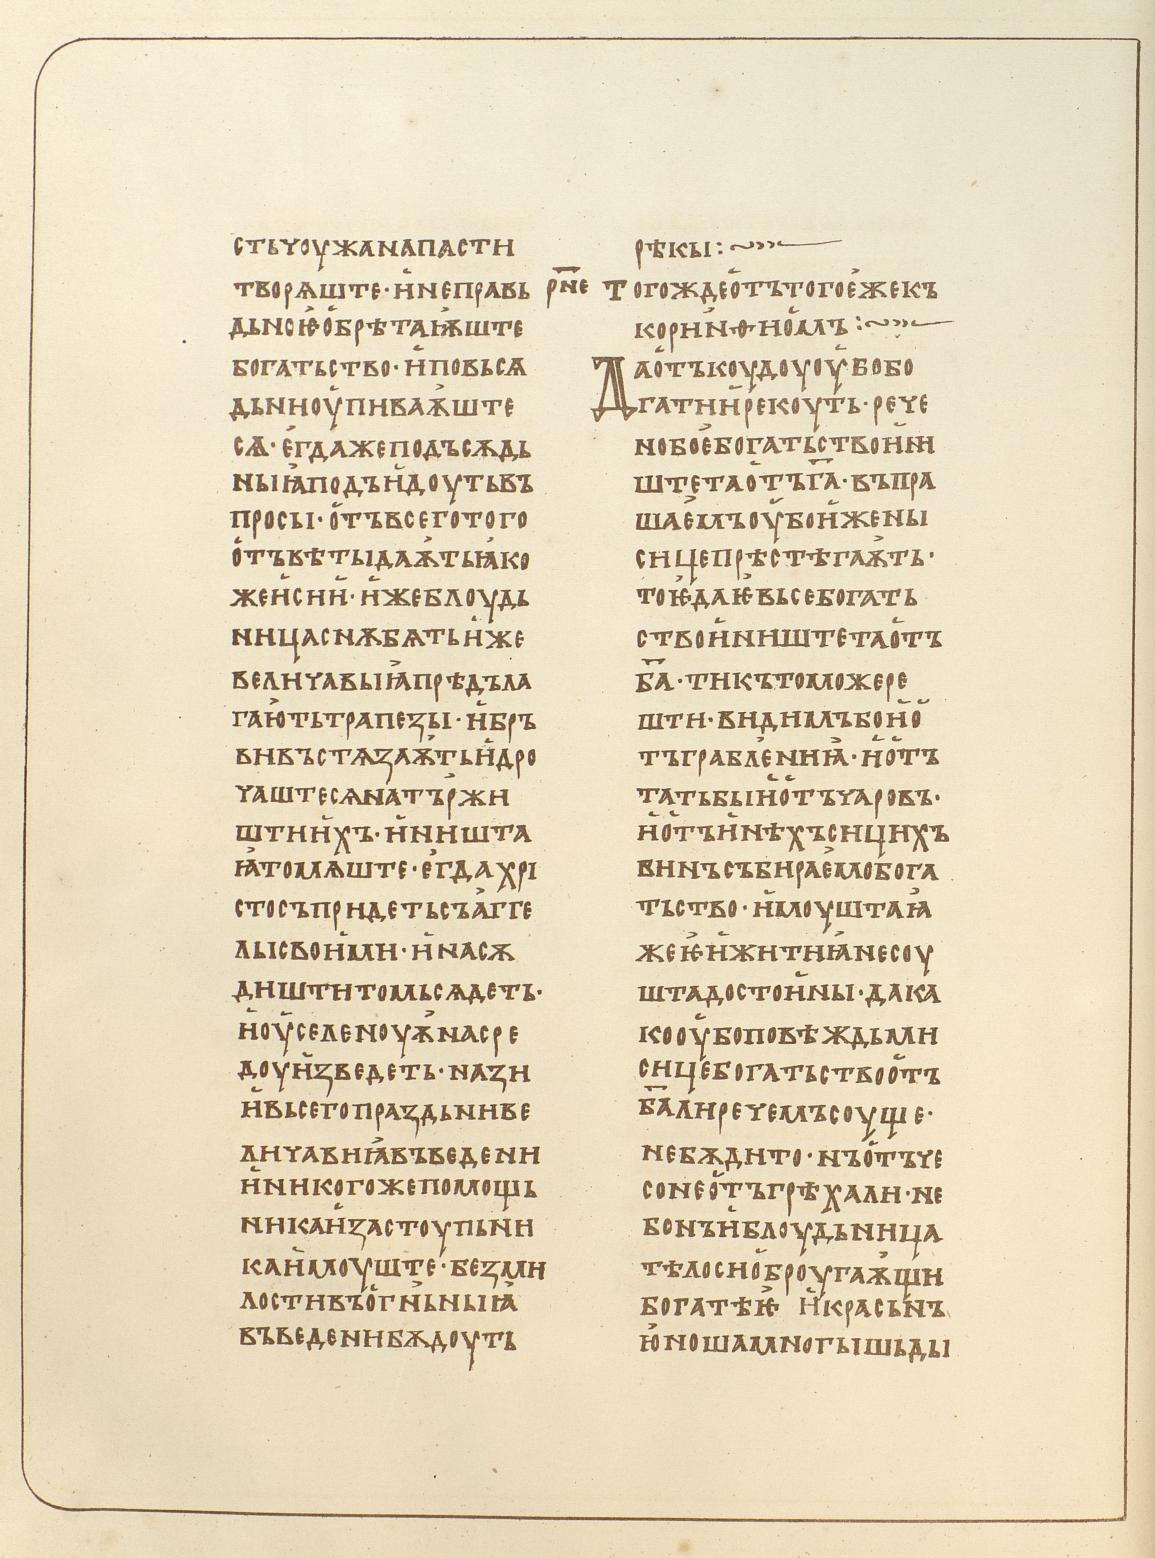 стьꙋоужанапасти
творѧ҅ште· и҅неправь
дьносѥ҅о҅брѣтаѭ҅ште
богатьство· и҅повьсѧ
дьниоу҅пиваѫ҅ште
сѧ· е҅гдажеподъсѫдь
ныꙗ҅подъи҅доутьвъ
просы· о҅тъвсего҅того
о҅тъвѣтыдаѫ҅тьꙗ҅ко
жеи҅сии҅· и҅жеблоудь
ницаснѫбѧтьи҅же
величавыꙗ҅прѣдъла
гаю҅тьтрапеꙁы· и҅бръ
вивъстѧꙁаѫ҅тьи҅дро
чаштесѧнатържи
штии҅хъ· и҅ниишта
ꙗ҅томѧште· е҅гдахрі
стосъпридетьсъа҅гге
лысвои҅ми· и҅насѫ
диштитомьсѧдеть·
и҅оу҅селеноуѭ҅насре
доуи҅ꙁведеть· наꙁи
и҅вьсегопраꙁдьниве
личавиꙗ҅въведени
и҅никогожепомощь
никаи҅ꙁастоупьни
каи҅моуште· беꙁми
лостивъо҅гн҄ьныꙗ҅
въведенибѫдоуть
рѣкы:
рн҃е тогождео҅тътогое҅жекъ
кори҅нѳио҅мъ:
Дао҅тъкоудоуоу҅бобо
гатии҅рекоуть· рече
нобое҅богатьствои҅ни
штетао҅тъг҃а· въпра
шае҅мъоу҅бои҅жены
сицепрѣстѣгаѫ҅ть·
тоѥ҅даѥ҅вьсебогать
ствои҅ништетао҅тъ
б҃а· тикътоможере
шти· видимъбои҅о҅
тъграбл҄ениꙗ҅· и҅о҅тъ
татьбыи҅о҅тъчаровъ·
и҅о҅тъи҅нѣхъсицихъ
винъсъбирае҅мобога
тьство· и҅моуштаꙗ҅
жеѥ҅и҅житиꙗ҅несоу
штадостои҅ны· дака
кооу҅боповѣждьми
сицебогатьствоо҅тъ
б҃алиречемъсоуще·
небѫдито· нъо҅тъче
сонео҅тъгрѣхали· не
бонъи҅блоудьница
тѣлосио҅броугаѫ҅щи
богатѣѥ҅ и҅красьнъ
ю҅ношамногышьды